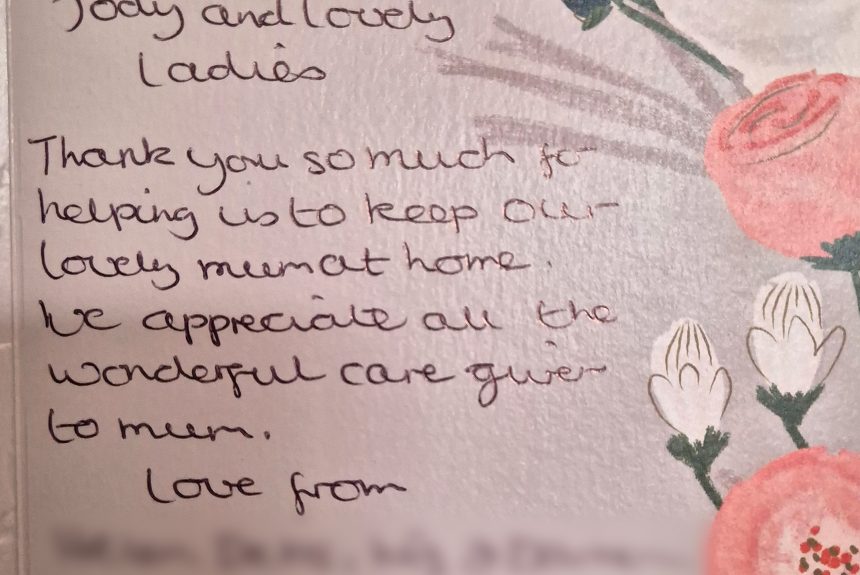 Jody and lovely
Ladies
Thank you so much for
helping us to keep our
lovely mum at home.
We appreciate all the
wonderful care given
to mum.
Love from